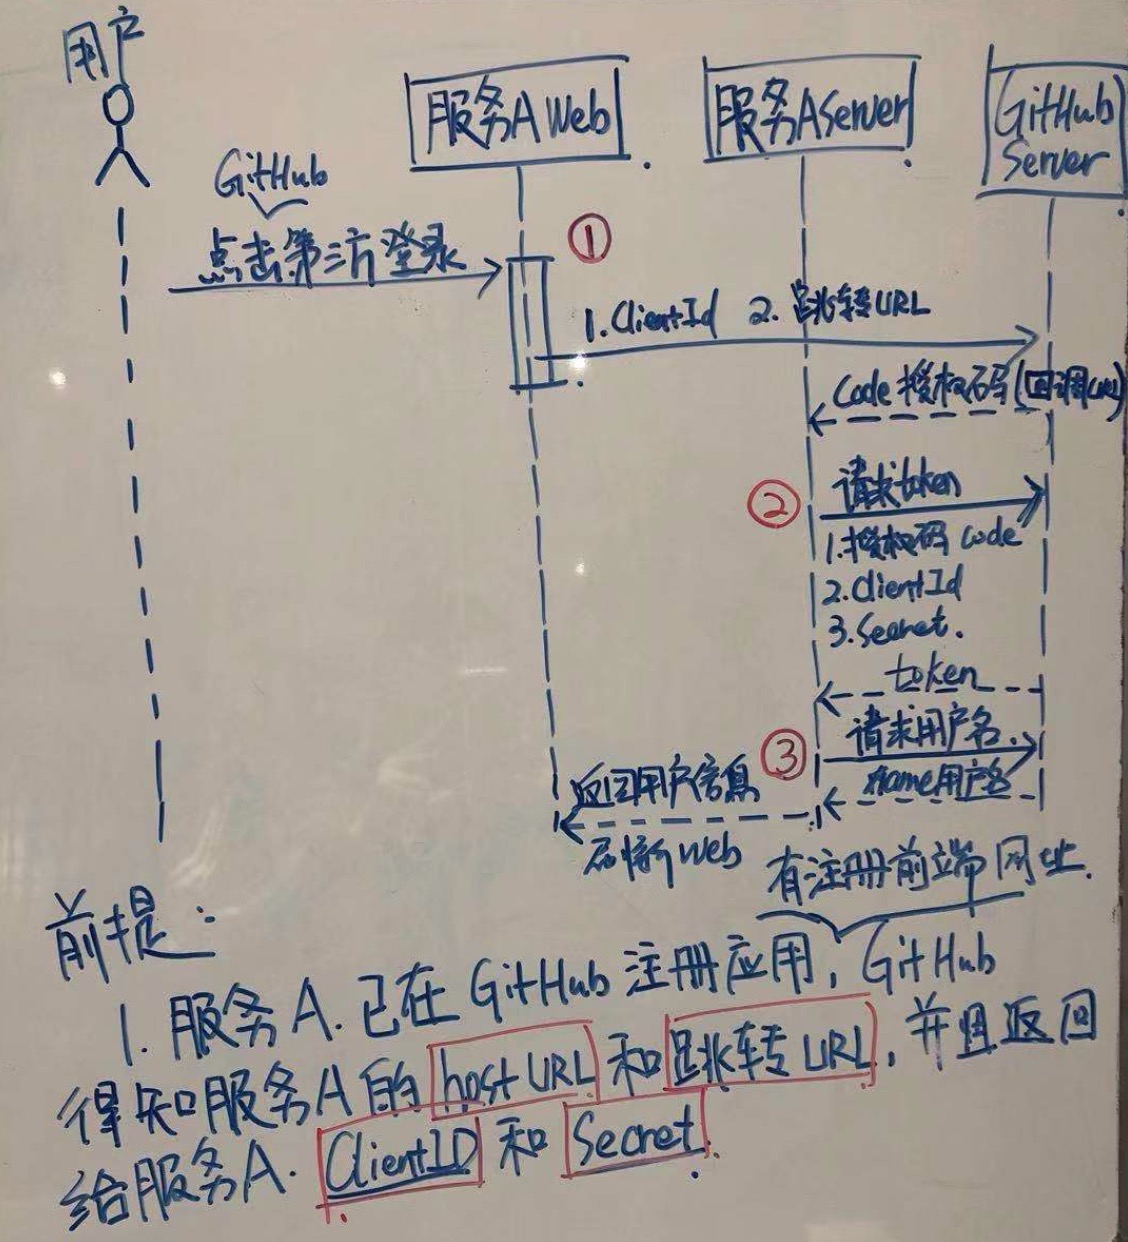 用户
服务A Web
服务AServer
GitHub
Server
GitHub
点击第三方登录
①
1.ClientId 2.跳转URL
Code 授权码(回调URL)
②
请求token
1.授权码 Code
2.ClientId
3.Secret.
token
③
请求用户名.
name用户名
返回用户信息
刷新Web
有注册前端网址.
前提:
1. 服务A.已在GitHub注册应用, GitHub
得知服务A的 host URL 和 跳转URL, 并且返回
给服务A. ClientID 和 Secret.